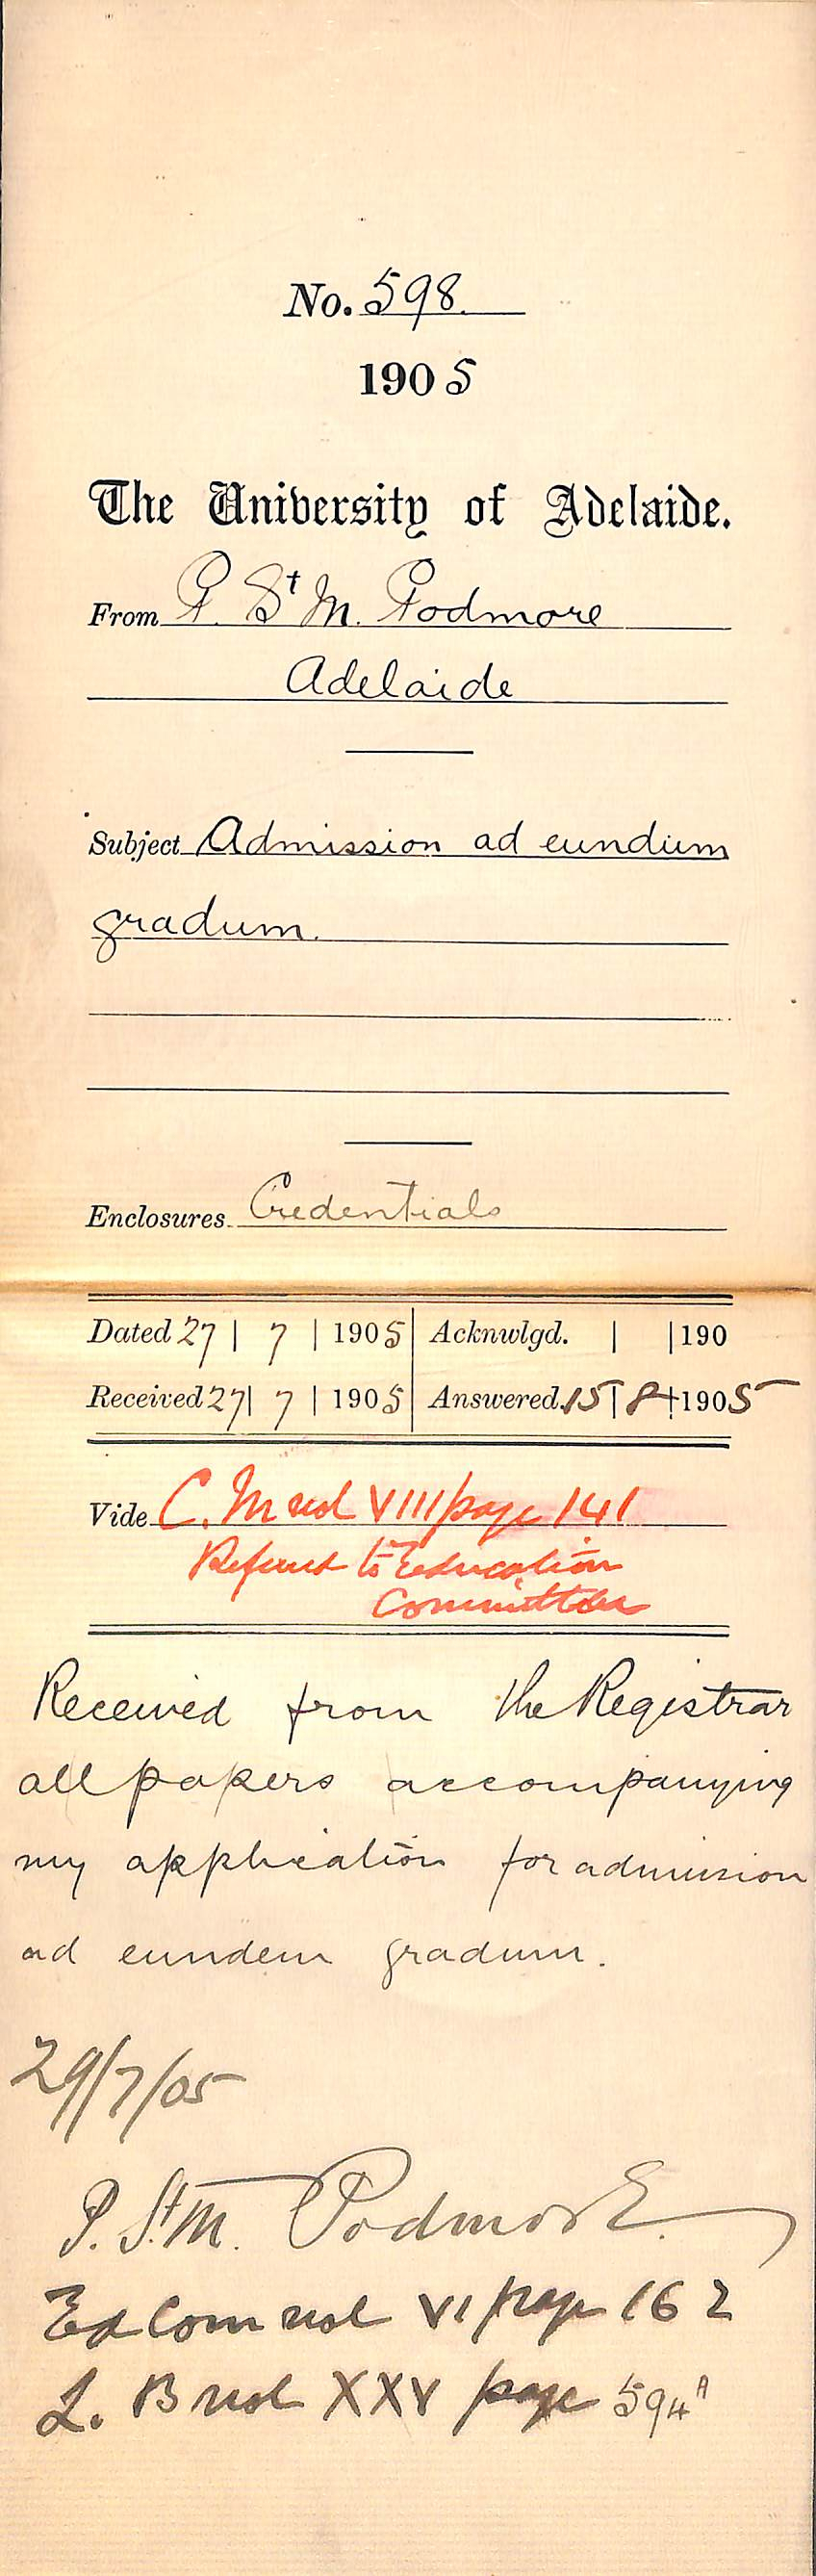 No. 598.
1905
The University of Adelaide.
From P. St M. Podmore
Adelaide
Subject Admission ad eundum
gradum.
Enclosures Credentials
Dated 27 | 7 | 1905 Acknwlgd. | | 190
Received 27 | 7 | 1905 Answered. 15 | 8 | 1905
Vide C. M vol VIII page 141
Referred to Education
Committee
Received from the Registrar
all papers accompanying
my application for admission
ad eundem gradum.
29/7/05
P. St. M. Podmore.
Ed Com vol VI page 162
L. B vol XXV page 594A